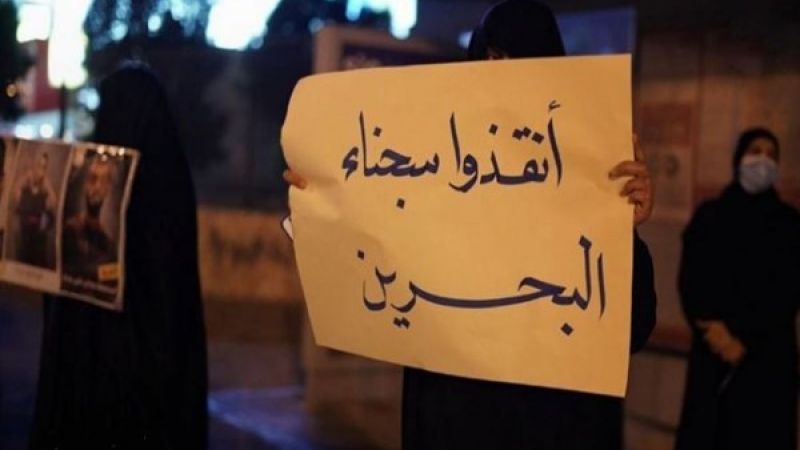 أنقذوا سجناء
البحرين